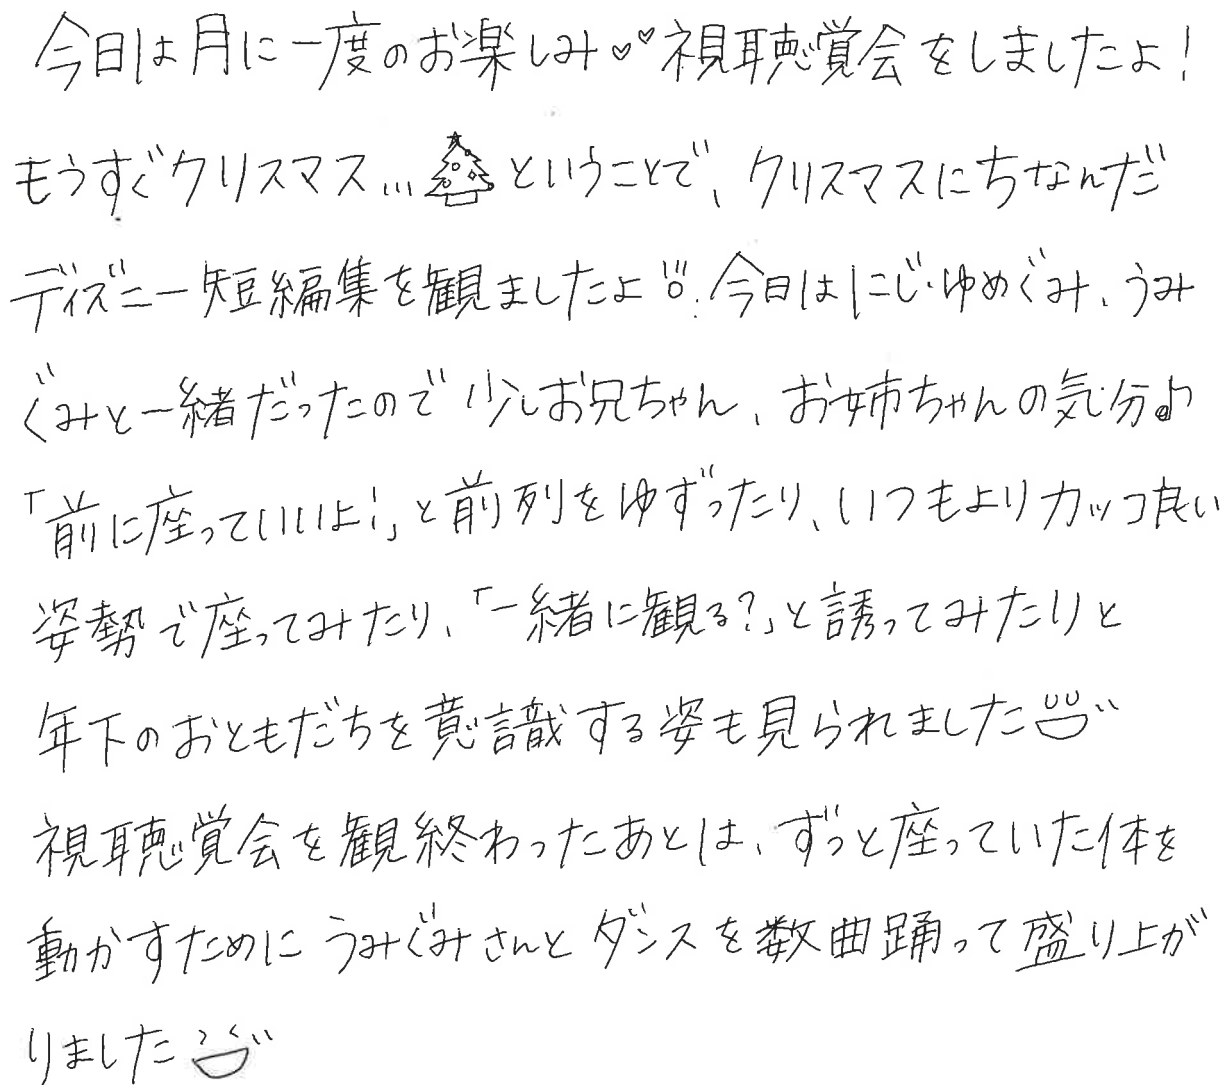 今日は月に一度のお楽しみ♡♡視聴覚会をしましたよ!
もうすぐクリスマス...🎄ということで、クリスマスにちなんだ
ディズニー短編集を観ましたよ!!今日はにじ・ゆめぐみ、うみ
ぐみと一緒だったので少しお兄ちゃん、お姉ちゃんの気分♪
「前に座っていいよ!」と前列をゆずったり、いつもよりカッコ良い
姿勢で座ってみたり、「一緒に観る?」と誘ってみたりと
年下のおともだちを意識する姿も見られました
視聴覚会を観終わったあとは、ずっと座っていた体を
動かすためにうみぐみさんとダンスを数曲踊って盛り上が
りました